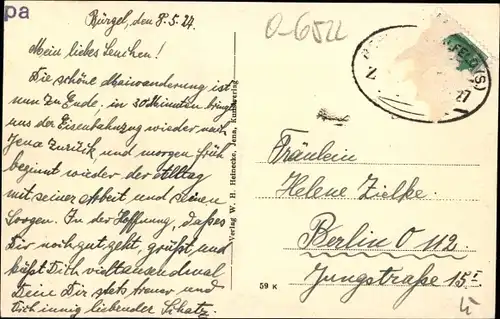 pa
Bürgel, den 8.5.24.
O-6522
Mein liebes Lenchen!
Die schöne Maiwanderung ist
nun zu Ende, in 30 Minuten bringt
uns der Eisenbahnzug wieder nach
Jena zurück und morgen früh
beginnt wieder der Alltag
mit seiner Arbeit und seinen
Sorgen. In der Hoffnung, daß es
Dir noch gut geht, grüßt und
küßt Dich vieltausendmal
Deine Dir stets treuer und
Dich innig liebender Schatz.
Verlag W. H. Heinecke, Jena, Kunstverlag
59 K
FELD (S)
Z.
27
Fräulein
Helene Zielke.
Berlin O 112
Jungstraße 15 I